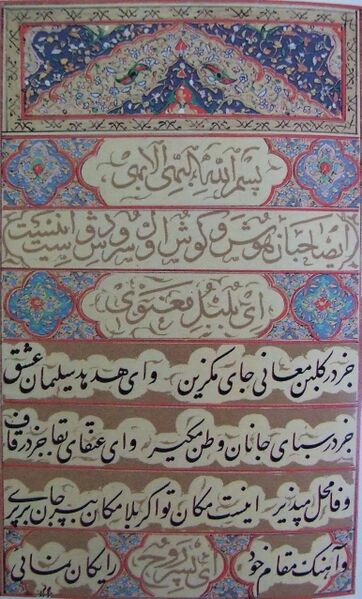 بسم الله البهی الابهی
ایصاحبان هوش و گوش اول سروش دوست اینست
ای بلبل معنوی
جز در گلبن معانی جای مگزین وای هدهد سلیمان عشق
جز در سبای جانان وطن مگیر وای عنقای بقا جز در قاف
وفا محل مپذیر اینست مکان تو اگر بلا مکان بپر جان برپری
و آهنگ مقام خود رایگان نمائی ای پسر روح